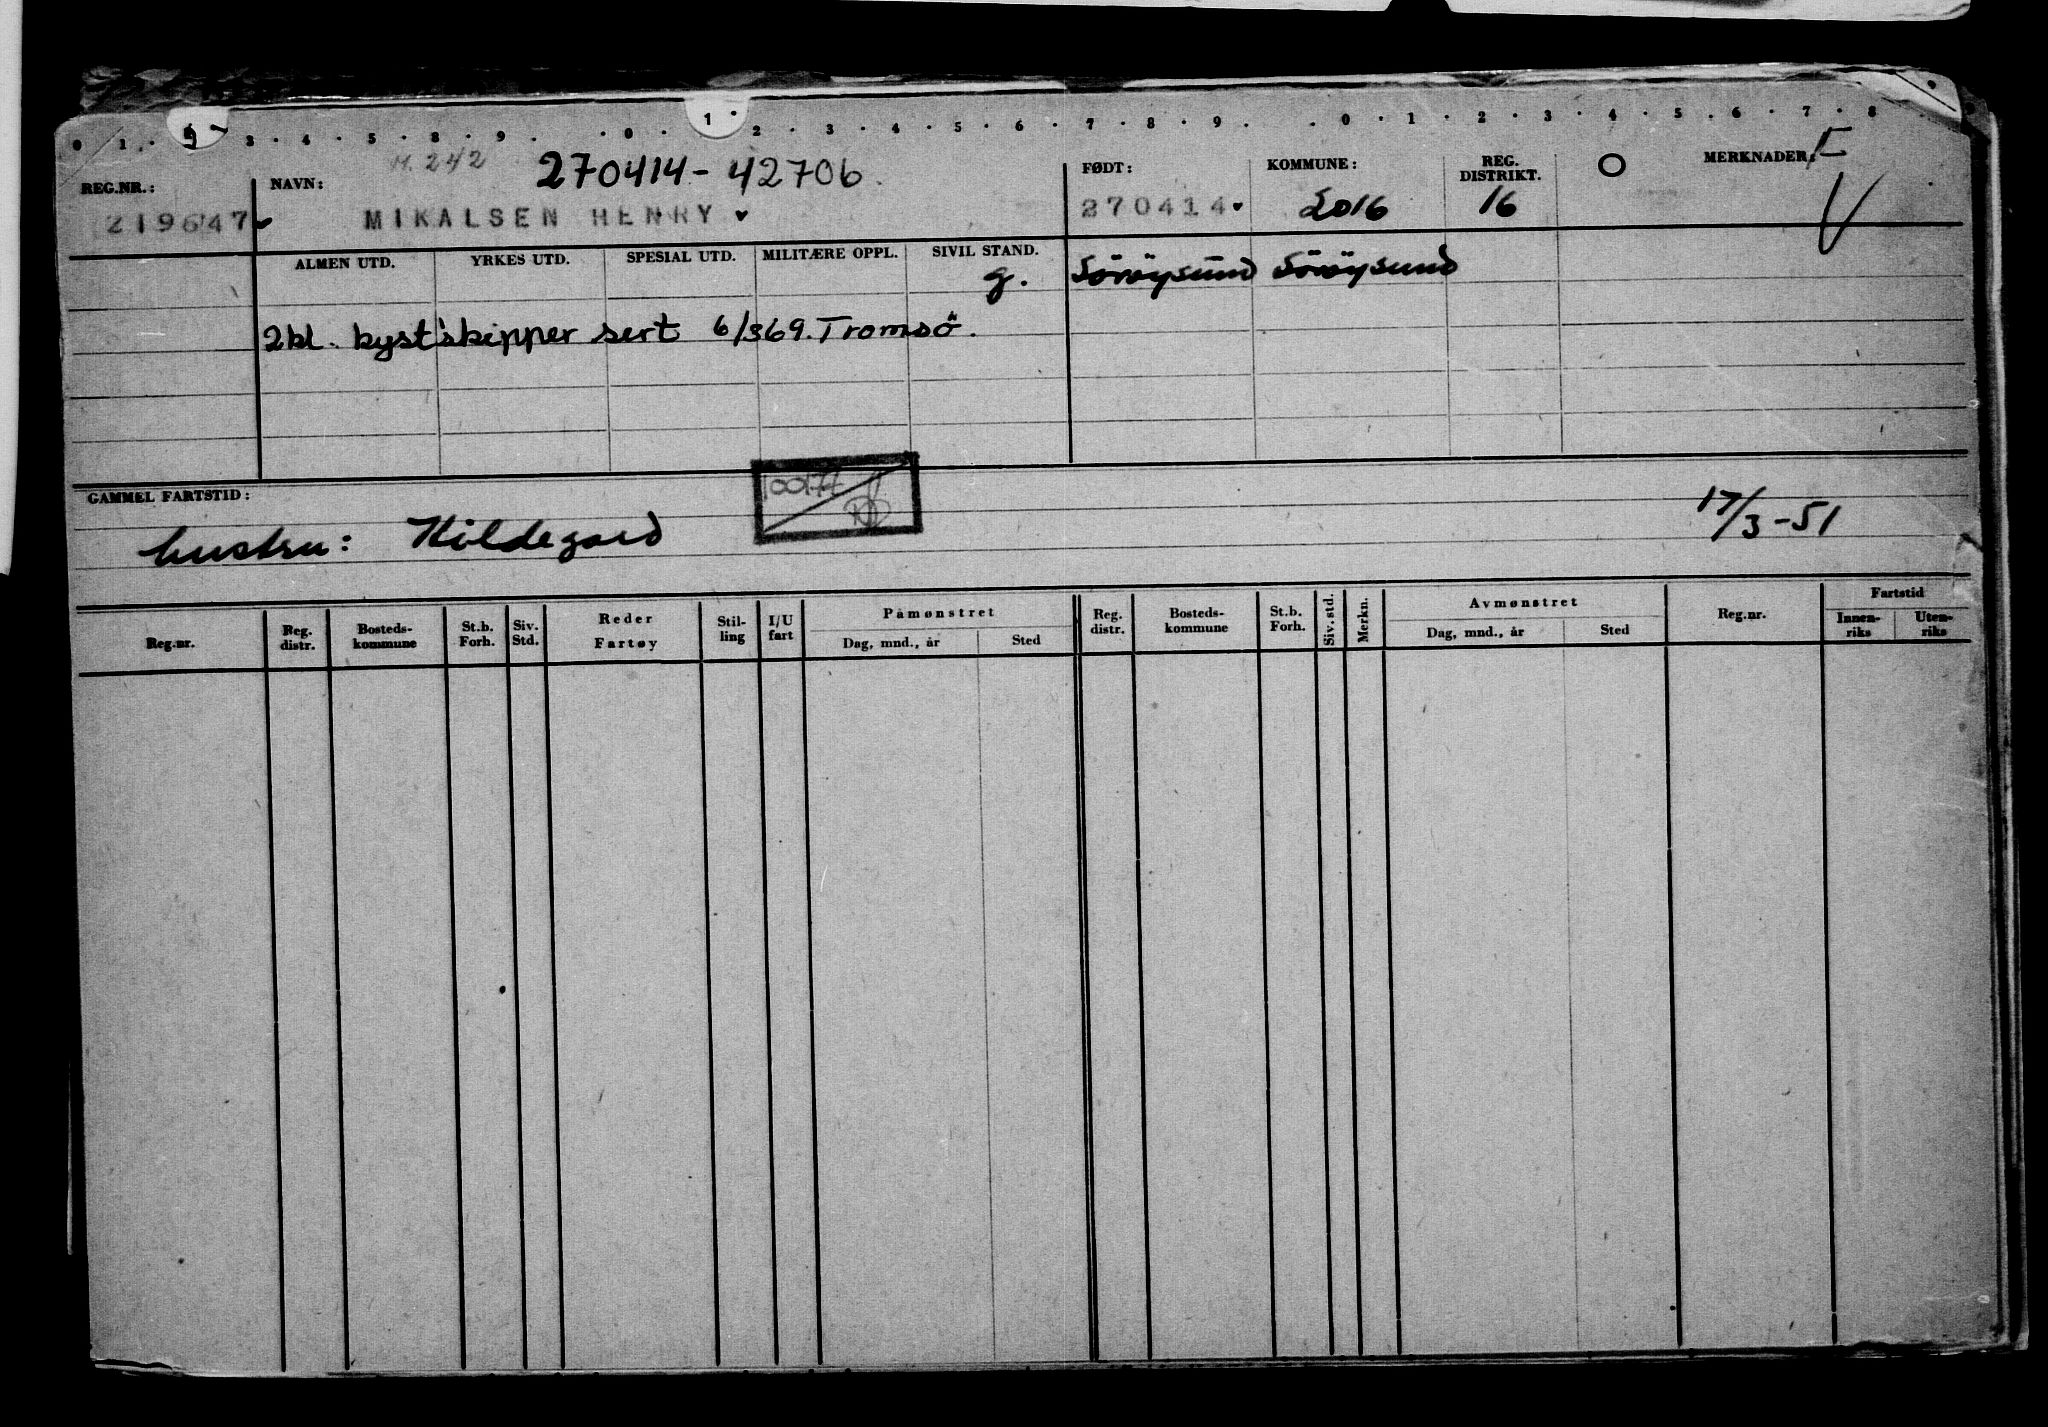 0 1 · 3 · 4 · 5 · 8 · 9 · · 0 · 1 · 2 · 3 · 4 · 5 · 6 · 7 · 8 · 9 · · 0 · 1 · 2 · 3 · 4 · 5 · 6 · 7 · 8
M. 242 270414-42706
REG.NR.: NAVN: FØDT: KOMMUNE: REG. DISTRIKT. MERKNADER:
219647 MIKALSEN HENRY 270414 2016 16 V
ALMEN UTD. YRKES UTD. SPESIAL UTD. MILITÆRE OPPL. SIVIL STAND.
g. Söröysund Söröysund
2kl. kystskipper sert 6/369. Tromsö.
GAMMEL FARTSTID: 100177 17/3-51
hustru: Hildegard
Reg.nr. Reg. distr. Bosteds-kommune St.b. Forh. Siv. Std. Reder Fartøy Stil-ling I/U fart Påmønstret Dag, mnd., år Sted Reg. distr. Bosteds-kommune St.b. Forh. Siv. std. Merkn. Avmønstret Dag, mnd., år Sted Reg.nr. Fartstid Innen-riks Uten-riks